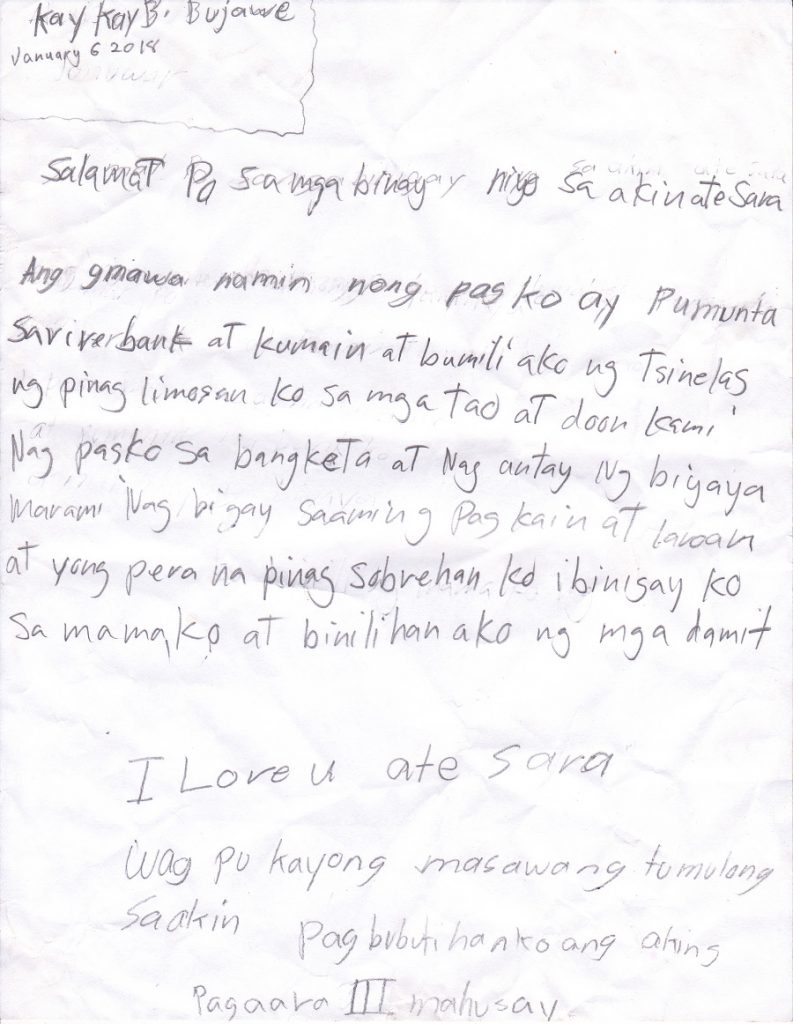 Kay Kay B. Bujawe
January 6 2018
Salamat Po saa mga binay niyo sa akin ate Sara
Ang gmawa namin nong pasko ay Pumunta
Sa riverbank at kumain at bumili ako ng Tsinelas
ng pinag limosan ko sa mga tao at doon kami
Nag pasko sa bangketa at Nag antay Ng biyaya
Marami Nag bigay saaming Pag kain at laroan
at yong pera na pinag sobrehan ko ibinigay ko
Sa mama ko at binilihan ako ng mga damit
I Love u ate Sara
Wag pu kayong masawang tumulong
Saakin Pag bubuti hanko ang aking
Pagaara III mahusay